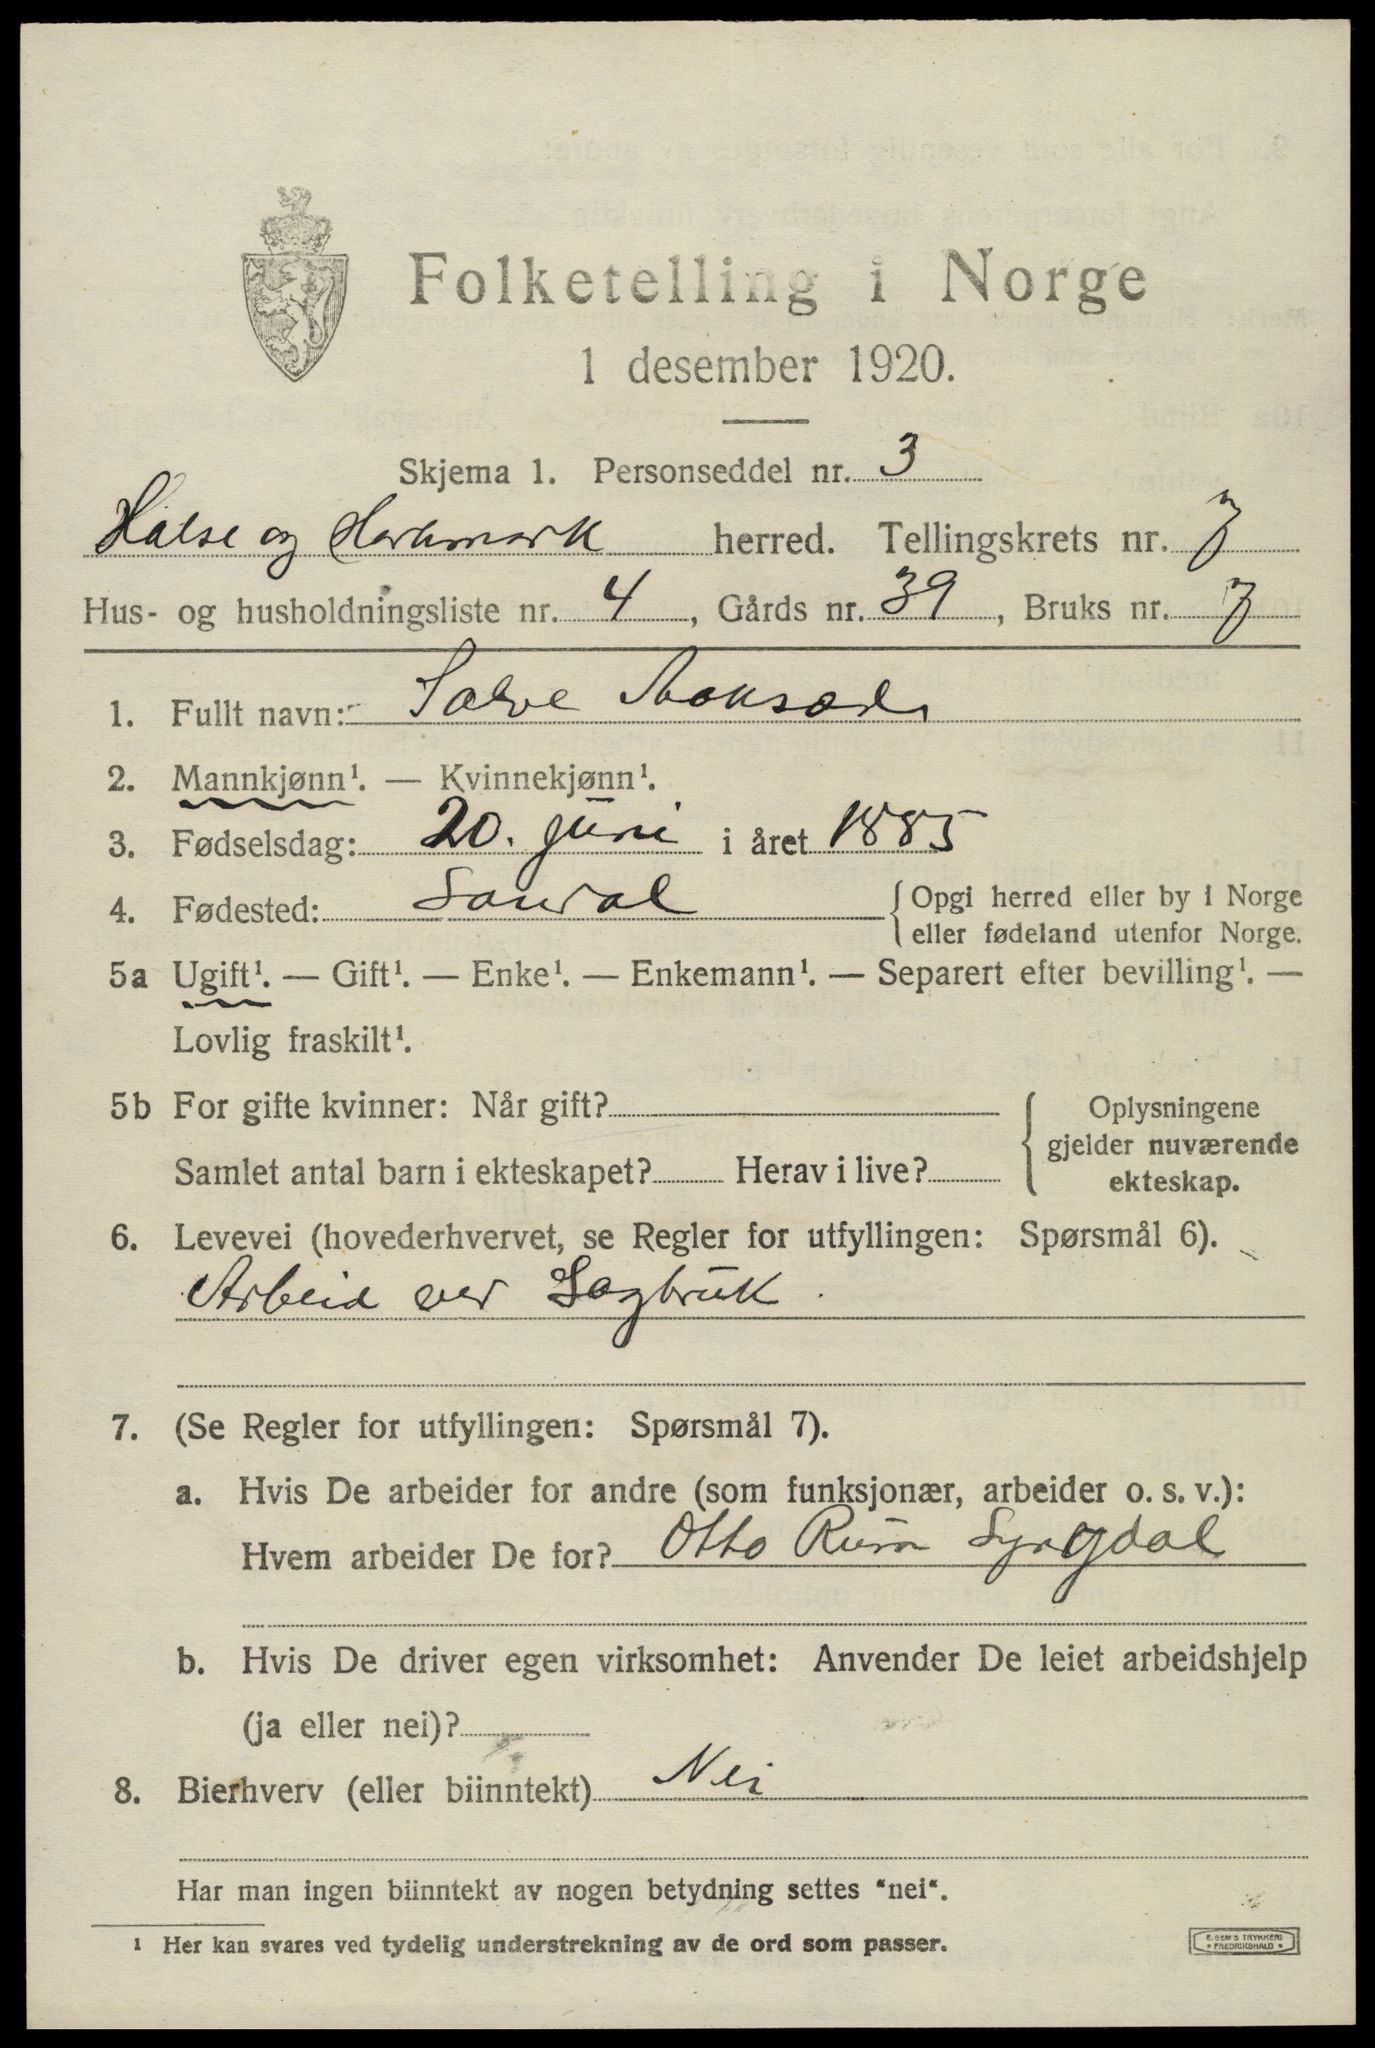 Folketelling i Norge
1 desember 1920.
Skjema 1. Personseddel nr. 3
Halse og Harkmark herred. Tellingskrets nr. 7
Hus- og husholdningsliste nr. 4, Gårds nr. 39, Bruks nr. 7
1. Fullt navn: Salve
2. Mannkjønn¹. — Kvinnekjønn¹.
3. Fødselsdag: 20. juni i året 1885
4. Fødested: Laudal { Opgi herred eller by i Norge
eller fødeland utenfor Norge.
5a Ugift¹. — Gift¹. — Enke¹. — Enkemann¹. — Separert efter bevilling¹. —
Lovlig fraskilt¹.
5b For gifte kvinner: Når gift? { Oplysningene
gjelder nuværende
Samlet antal barn i ekteskapet? Herav i live?
ekteskap.
6. Levevei (hovederhvervet, se Regler for utfyllingen: Spørsmål 6).
Arbeid ved Sagbruk.
7. (Se Regler for utfyllingen: Spørsmål 7).
a. Hvis De arbeider for andre (som funksjonær, arbeider o. s. v.):
Hvem arbeider De for? Otto Lyngdal
b. Hvis De driver egen virksomhet: Anvender De leiet arbeidshjelp
(ja eller nei)?
8. Bierhverv (eller biinntekt) Nei
Har man ingen biinntekt av nogen betydning settes "nei".
¹ Her kan svares ved tydelig understrekning av de ord som passer.
E. SEM'S TRYKKERI
• FREDRIKSHALD •